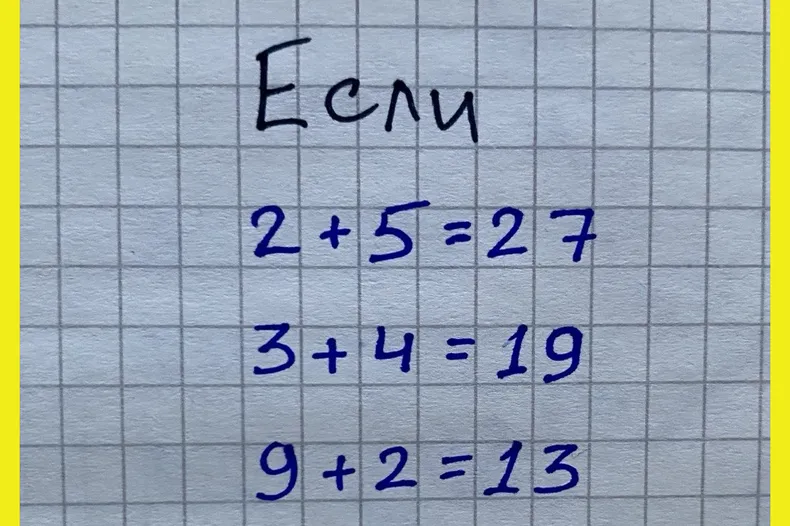 Если
2+5=27
3+4=19
9+2=13